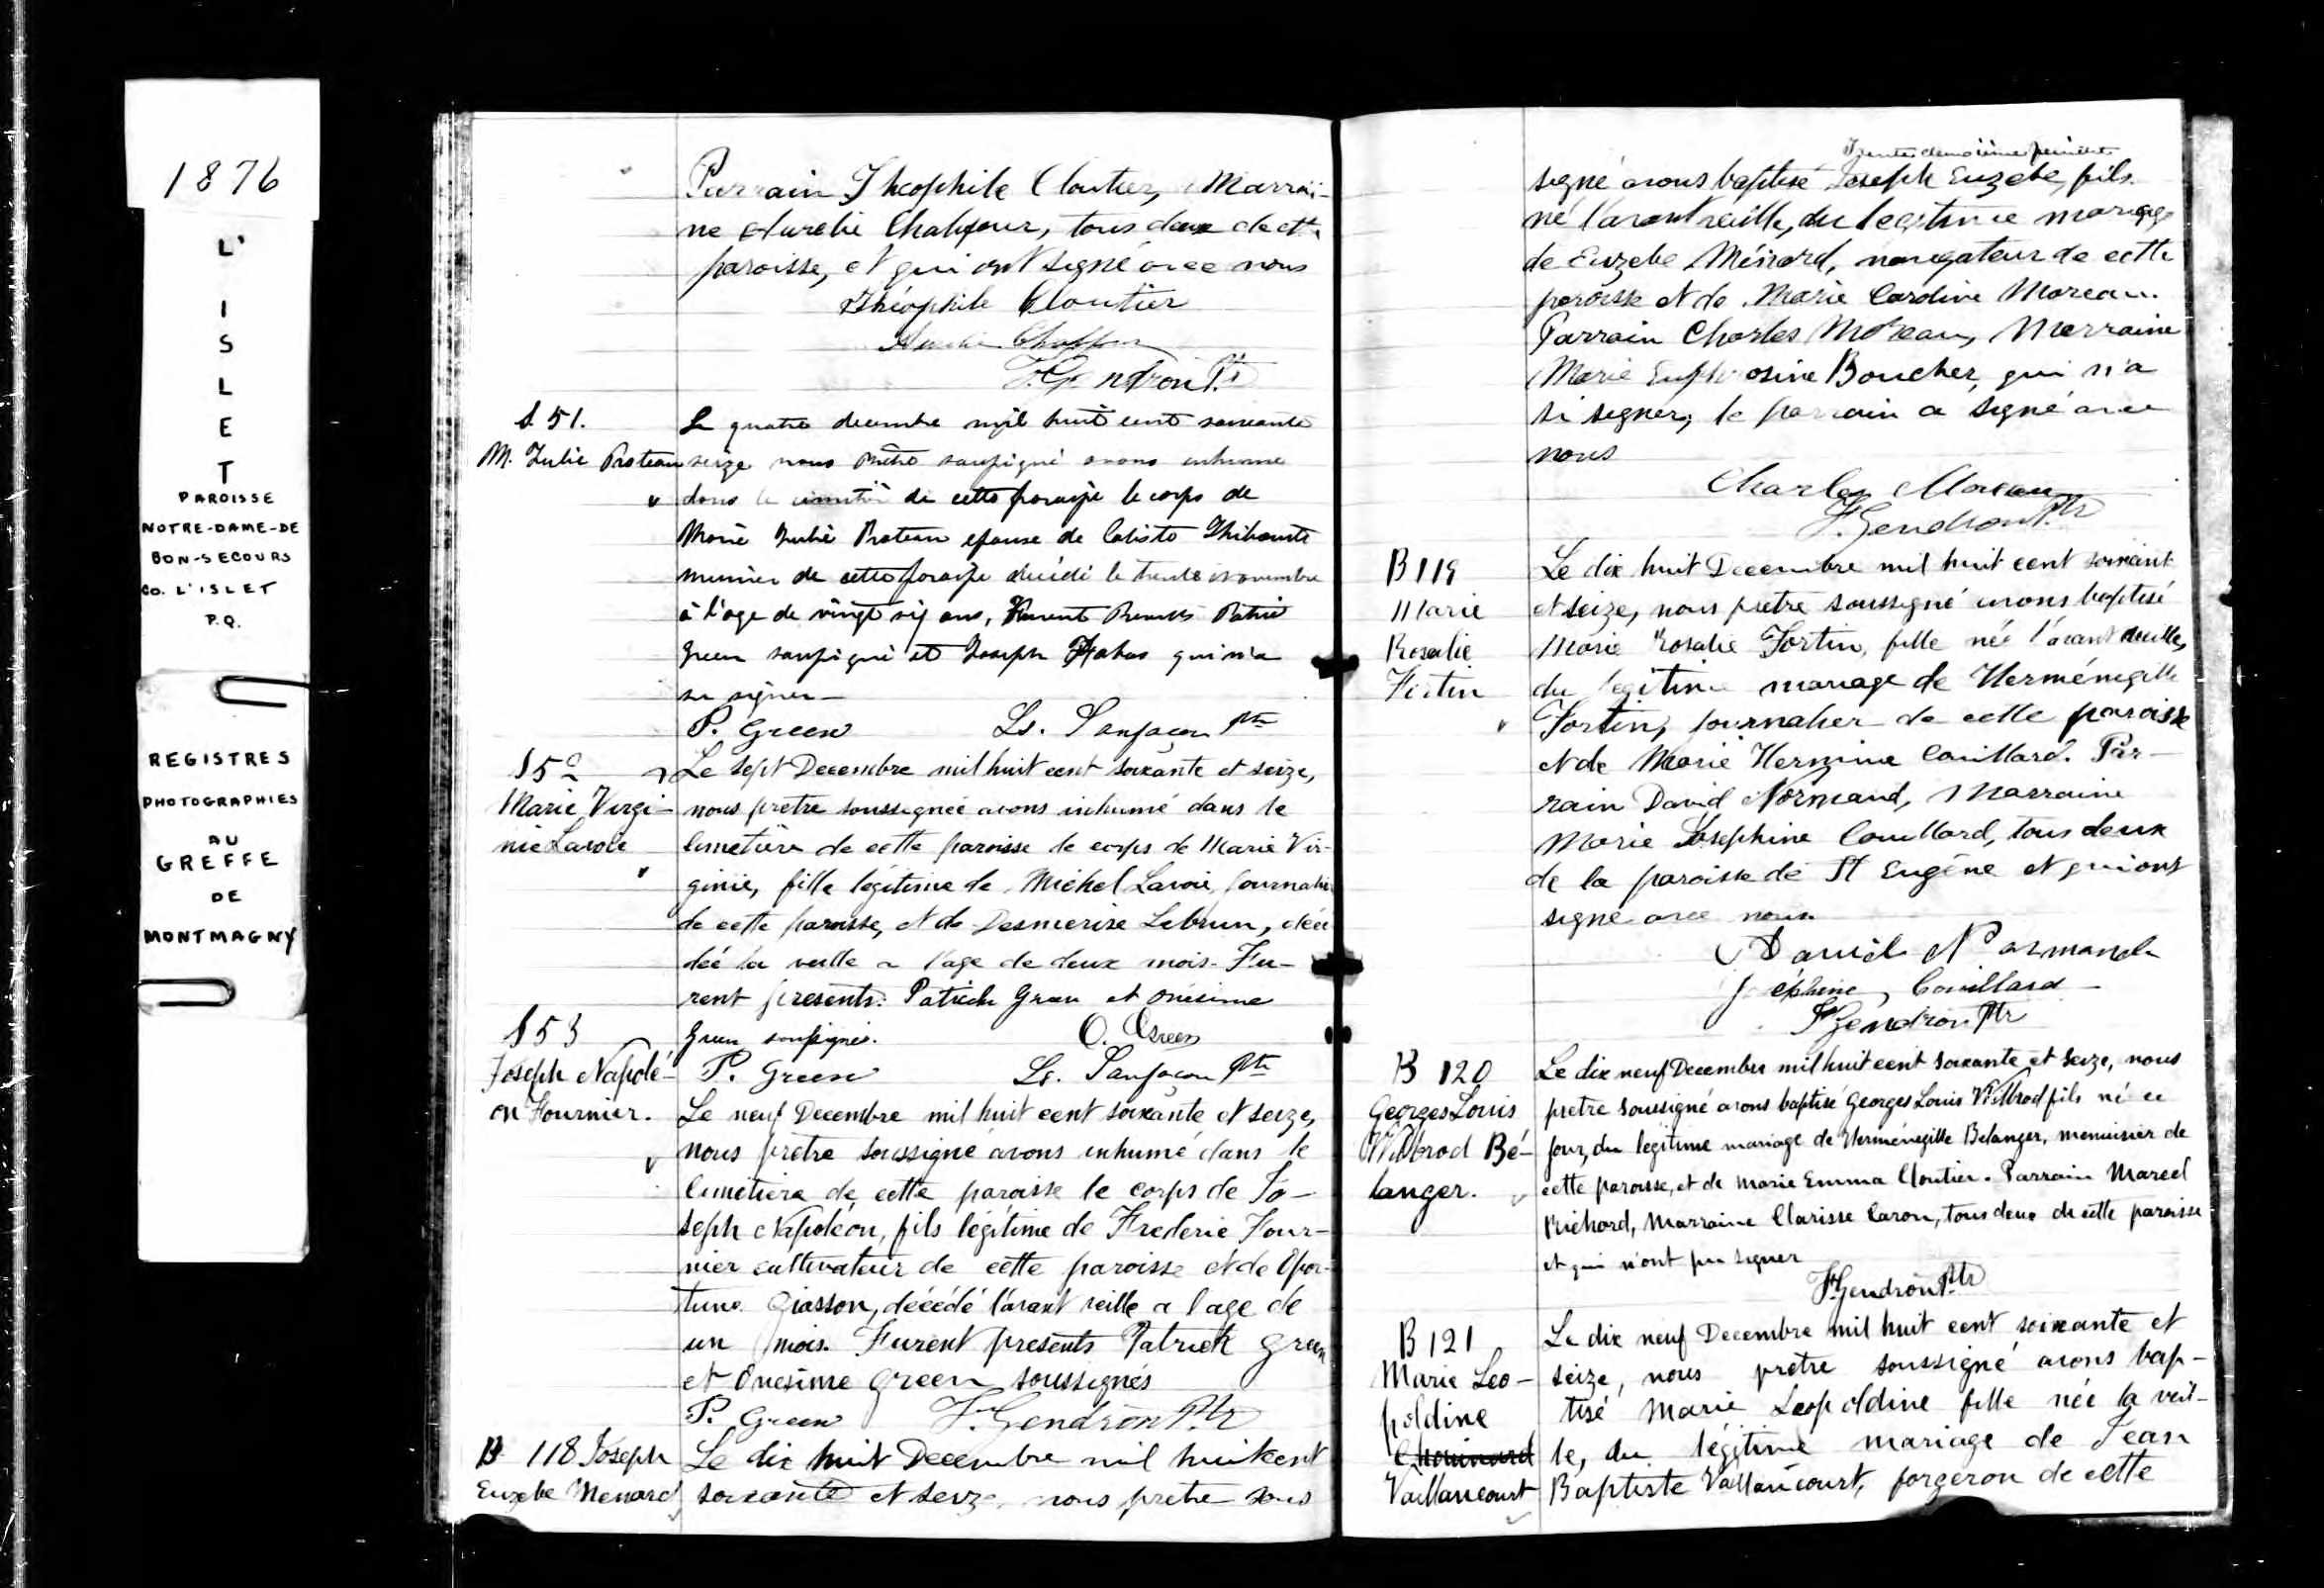 1876
L'
I
S
L
E
T
PAROISSE
NOTRE-DAME-DE
BON-SECOURS
CO. L'ISLET
P.Q.
REGISTRES
PHOTOGRAPHIES
AU
GREFFE
DE
MONTMAGNY
Parrain Théophile Cloutier, Marrai-
ne Aurelie deux de cette
paroisse, et qui ont signé avec nous
Théophile Cloutier
F. Gendron Ptr
S 51.
M. Julie Proteau
Le quatre decembre mil huit cent soixante
seize nous prêtre soussigné avons inhumé
dans le cimetière de cette paroisse le corps de
Marie Julie Proteau epouse de Calixte Thibault
meunier de cette paroisse décédé le trente novembre
à l'age de vingt six ans, Furent Presents Patrick
Green soussigné et Joseph qui n'a
su signer—
P. Green Ls. Sanfaçon Ptr
S 52
Marie Virgi-
nie Lavoie
Le sept Decembre mil huit cent soixante et seize,
nous pretre soussignée avons inhumé dans le
Cimetière de cette paroisse le corps de Marie Vir-
ginie, fille légitime de Michel Lavoie, journalier
de cette paroisse, et de Desmerise Lebrun, décé
dée la veille a l'age de deux mois. Fu-
rent presents. Patrick Green et Onésime
Green soussignés. O. Green
P. Green Ls. Sanfaçon Ptr
S 53
Joseph Napolé-
on Fournier.
Le neuf Decembre mil huit cent soixante et seize,
nous prêtre soussigné avons inhumé dans le
Cimetiere de cette paroisse le corps de Jo-
seph Napoléon, fils légitime de Frederic Four-
nier cultivateur de cette paroisse et de Opor-
tune Giasson, décédé l'avant veille a l'age de
un mois. Furent presents Patrick Green
et Onésime Green soussignés
P. Green F. Gendron Ptr
B 118 Joseph
Euzebe Menard
Le dix huit Decembre mil huit cent
soixante et seize, nous pretre sous
Trente deuxième feuillet
signé avons baptisé Joseph Euzebe, fils
né l'avant veille, du legitime mariage
de Euzebe Ménard, navigateur de cette
paroisse et de Marie Caroline Moreau.
Parrain Charles Moreau, Marraine
Marie Euphrosine Boucher, qui n'a
su signer, le parrain a signé avec
nous
Charles Moreau
F. Gendron Ptr
B 119
Marie
Rosalie
Fortin
Le dix huit Decembre mil huit cent soixant
et seize, nous pretre soussigné avons baptisé
Marie Rosalie Fortin, fille née l'avant veille,
du legitime mariage de Herménégille
Fortin, journalier de cette paroisse
et de Marie Hermine Couillard. Par-
rain David Normand, Marraine
Marie Josephine Couillard, tous deux
de la paroisse de St Eugène et qui ont
signé avec nous
David Normand
Joséphine Couillard
F. Gendron Ptr
B 120
Georges Louis
Wilbrod Bé-
langer.
Le dix neuf Decembre mil huit cent soixante et seize, nous
pretre soussigné avons baptisé Georges Louis Wilbrod fils né ce
jour, du legitime mariage de Herménégille Belanger, menuisier de
cette paroisse, et de Marie Emma Cloutier. Parrain Marcel
Richard, Marraine Clarisse Caron, tous deux de cette paroisse
et qui n'ont pu signer
F. Gendron Ptr
B 121
Marie Léo-
poldine
Chouinard
Vaillancourt
Le dix neuf Decembre mil huit cent soixante et
seize, nous prêtre soussigné avons bap-
tisé Marie Leopoldine fille née la veil-
le, du légitime mariage de Jean
Baptiste Vaillancourt, forgeron de cette